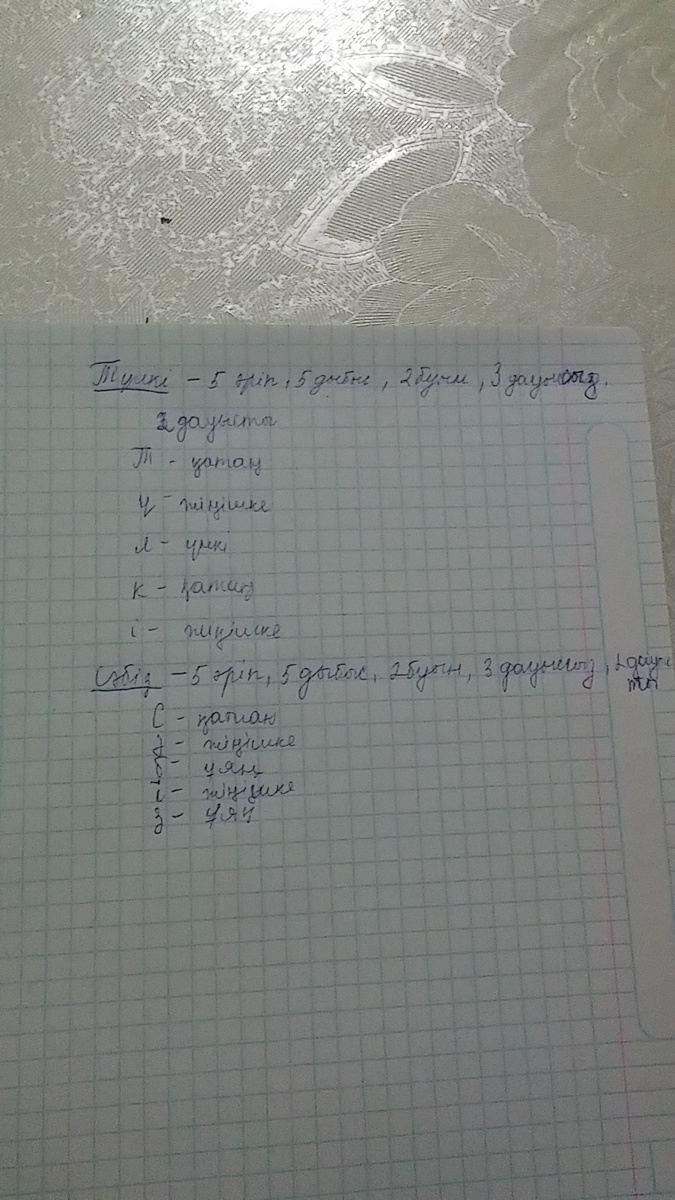 Түлкі – 5 әріп, 5 дыбыс, 2 буын, 3 дауыссыз,
2 дауысты
Т – қатаң
ү – жіңішке
л – үнді
к – қатаң
і – жіңішке
Сәбіз – 5 әріп, 5 дыбыс, 2 буын, 3 дауыссыз, 2 дауыс
ты
С – қатаң
ә – жіңішке
б – ұяң
і – жіңішке
з – ұяң